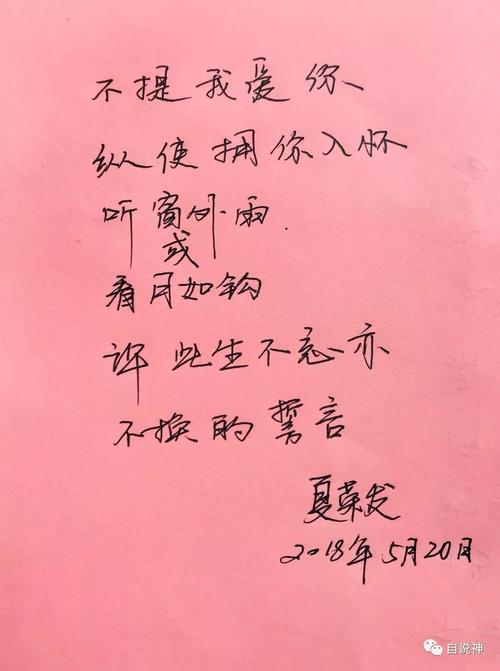 不提我爱你、
纵使拥你入怀
听窗外雨
或
看月如钩
许此生不忘亦
不换的誓言
夏荣发
2018年5月20日
自说神